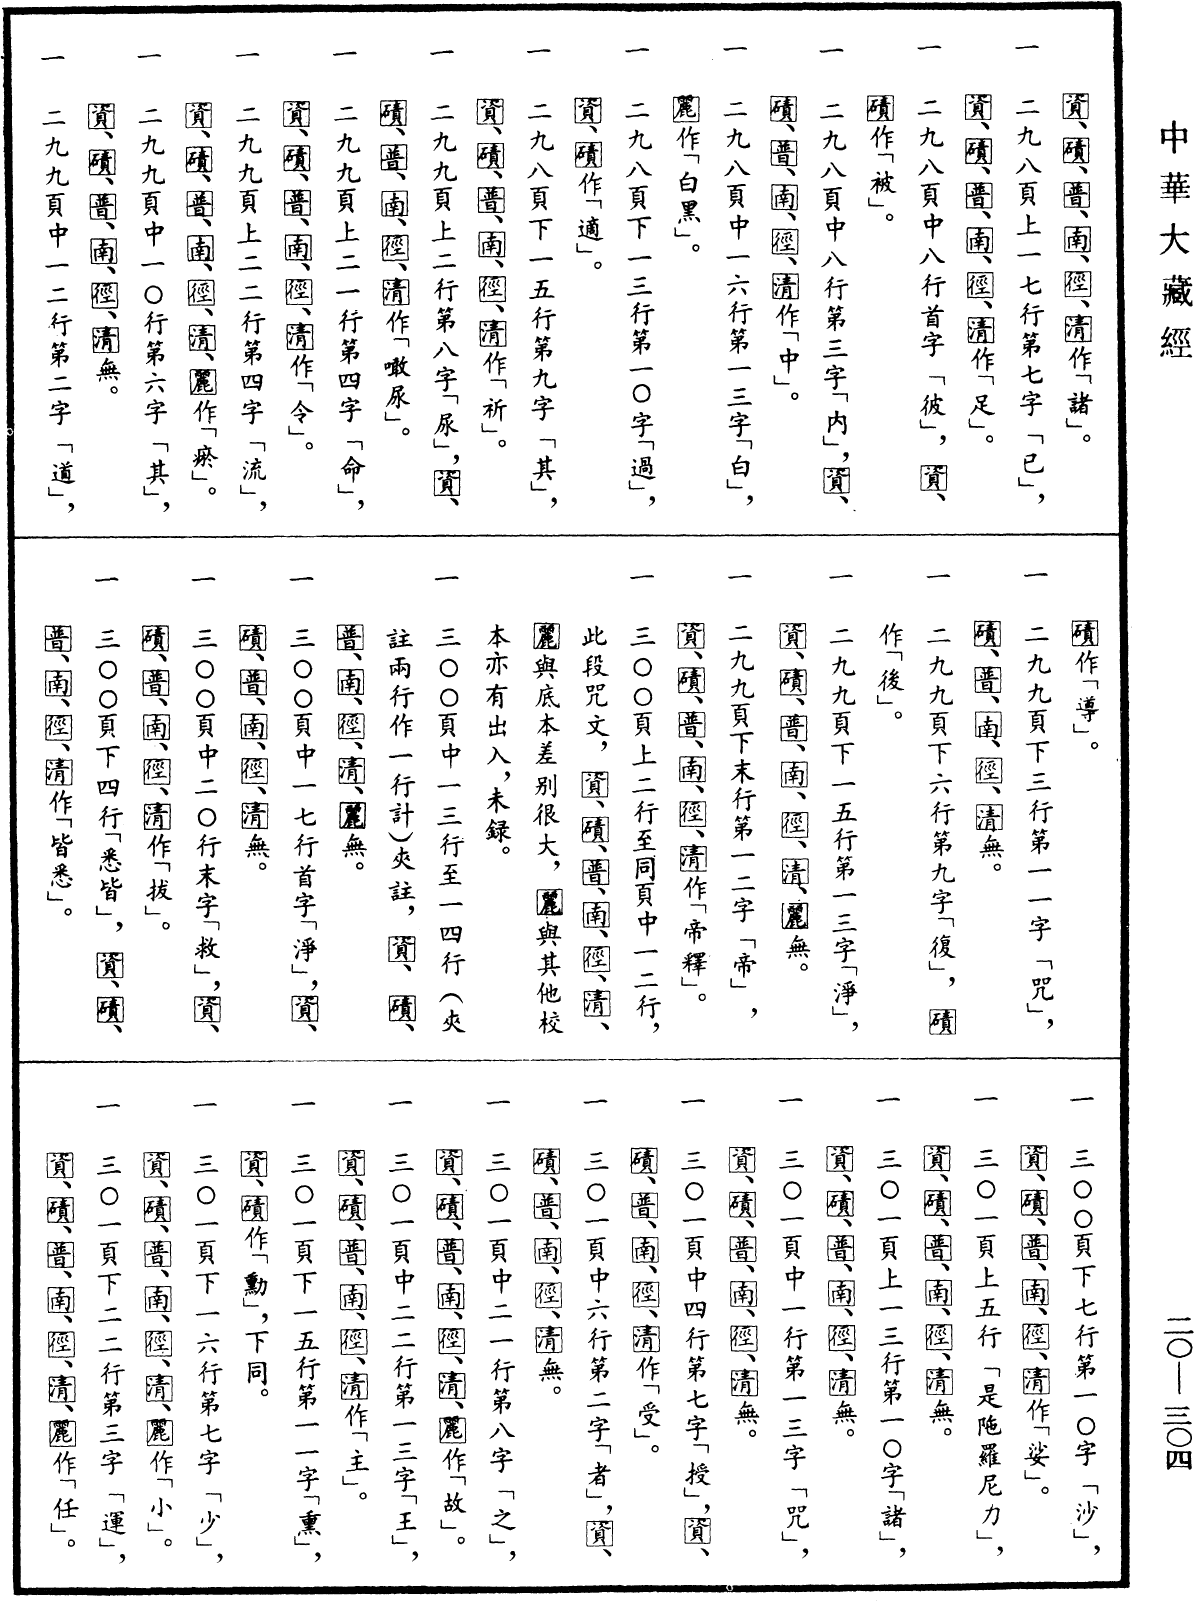 中華大藏經
資、磧、普、南、徑、清作「諸」。
一　二九八頁上一七行第七字「已」，
資、磧、普、南、徑、清作「足」。
一　二九八頁中八行首字「彼」，資、
磧作「被」。
一　二九八頁中八行第三字「内」，資、
磧、普、南、徑、清作「中」。
一　二九八頁中一六行第一三字「白」，
麗作「白黑」。
一　二九八頁下一三行第一〇字「過」，
資、磧作「適」。
一　二九八頁下一五行第九字「其」，
資、磧、普、南、徑、清作「祈」。
一　二九九頁上二行第八字「尿」，資、
磧、普、南、徑、清作「噉尿」。
一　二九九頁上二一行第四字「命」，
資、磧、普、南、徑、清作「令」。
一　二九九頁上二二行第四字「流」，
資、磧、普、南、徑、清、麗作「瘀」。
一　二九九頁中一〇行第六字「其」，
資、磧、普、南、徑、清無。
一　二九九頁中一二行第二字「道」，
磧作「導」。
一　二九九頁下三行第一一字「咒」，
磧、普、南、徑、清無。
一　二九九頁下六行第九字「復」，磧
作「後」。
一　二九九頁下一五行第一三字「淨」，
資、磧、普、南、徑、清、麗無。
一　二九九頁下末行第一二字「帝」，
資、磧、普、南、徑、清作「帝釋」。
一　三〇〇頁上二行至同頁中一二行，
此段咒文，資、磧、普、南、徑、清、
麗與底本差别很大，麗與其他校
本亦有出入，未録。
一　三〇〇頁中一三行至一四行（夾
註兩行作一行計）夾註，資、磧、
普、南、徑、清、麗無。
一　三〇〇頁中一七行首字「淨」，資、
磧、普、南、徑、清無。
一　三〇〇頁中二〇行末字「救」，資、
磧、普、南、徑、清作「拔」。
一　三〇〇頁下四行「悉皆」，資、磧、
普、南、徑、清作「皆悉」。
一　三〇〇頁下七行第一〇字「沙」，
資、磧、普、南、徑、清作「娑」。
一　三〇一頁上五行「是陁羅尼力」，
資、磧、普、南、徑、清無。
一　三〇一頁上一三行第一〇字「諸」，
資、磧、普、南、徑、清無。
一　三〇一頁中一行第一三字「咒」，
資、磧、普、南、徑、清無。
一　三〇一頁中四行第七字「授」，資、
磧、普、南、徑、清作「受」。
一　三〇一頁中六行第二字「者」，資、
磧、普、南、徑、清無。
一　三〇一頁中二一行第八字「之」，
資、磧、普、南、徑、清、麗作「故」。
一　三〇一頁中二二行第一三字「王」，
資、磧、普、南、徑、清作「主」。
一　三〇一頁下一五行第一一字「熏」，
資、磧作「勳」，下同。
一　三〇一頁下一六行第七字「少」，
資、磧、普、南、徑、清、麗作「小」。
一　三〇一頁下二二行第三字「運」，
資、磧、普、南、徑、清、麗作「任」。
二〇—三〇四